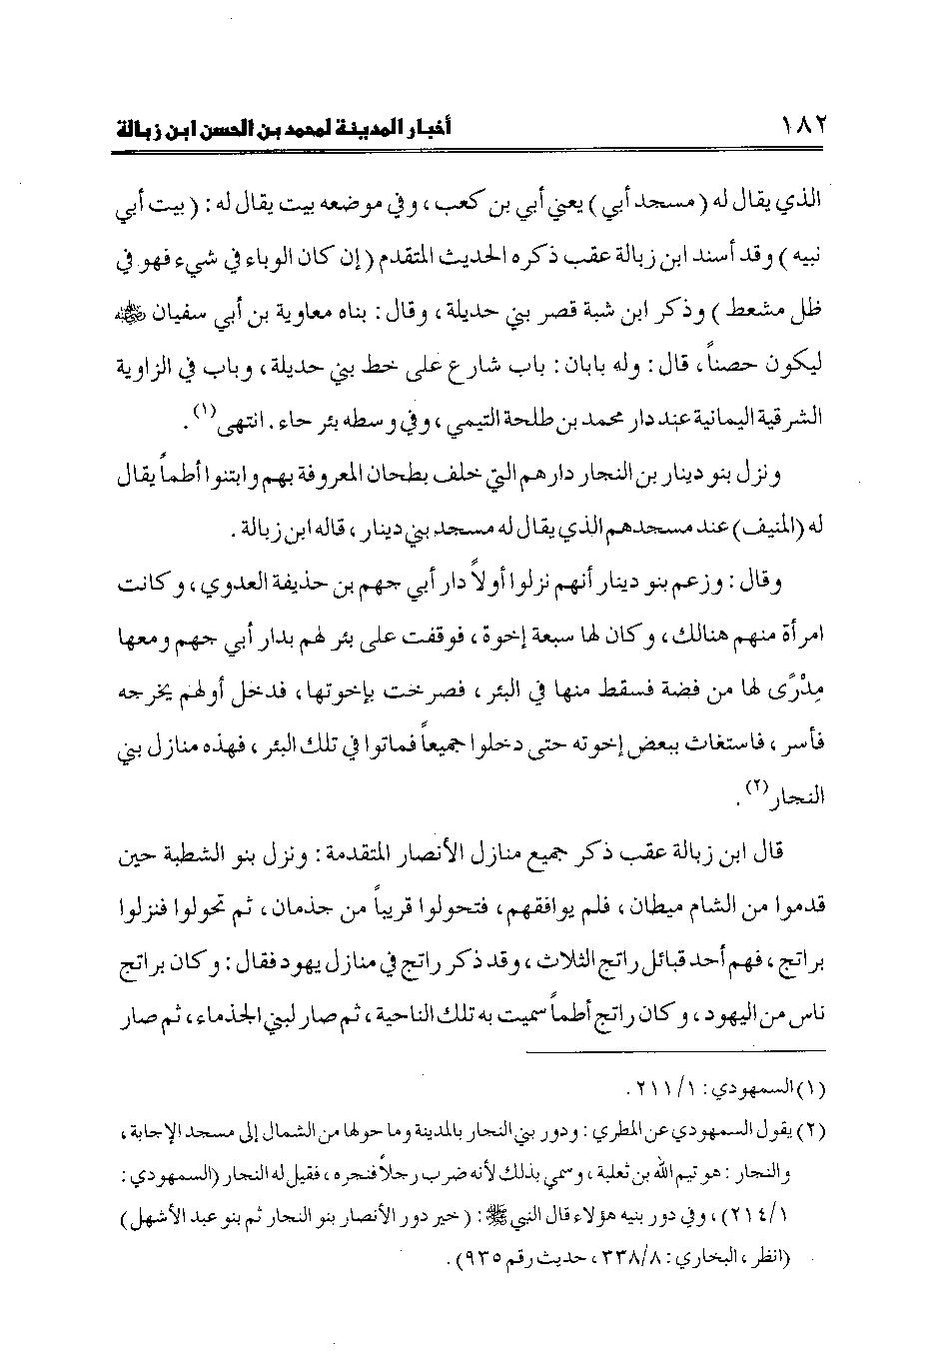 ١٨٢ أخبار المدينة لمحمد بن الحسن ابن زبالة
الذي يقال له (مسجد أبي) يعني أبي بن كعب، وفي موضعه بيت يقال له: (بيت أبي
نبيه) وقد أسند ابن زبالة عقب ذكره الحديث المتقدم (إن كان الوباء في شيء فهو في
ظل مشعط) وذكر ابن شبة قصر بني حديلة، وقال: بناه معاوية بن أبي سفيان رضي الله عنه
ليكون حصناً، قال: وله بابان: باب شارع على خط بني حديلة، وباب في الزاوية
الشرقية اليمانية عند دار محمد بن طلحة التيمي، وفي وسطه بئر حاء. انتهى(١).
ونزل بنو دينار بن النجار دارهم التي خلف بطحان المعروفة بهم وابتنوا أطماً يقال
له (المنيف) عند مسجدهم الذي يقال له مسجد بني دينار، قاله ابن زبالة.
وقال: وزعم بنو دينار أنهم نزلوا أولاً دار أبي جهم بن حذيفة العدوي، وكانت
امرأة منهم هنالك، وكان لها سبعة إخوة، فوقفت على بئر لهم بدار أبي جهم ومعها
مِدْرًى لها من فضة فسقط منها في البئر، فصرخت بإخوتها، فدخل أولهم يخرجه
فأسر، فاستغاث ببعض إخوته حتى دخلوا جميعاً فماتوا في تلك البئر، فهذه منازل بني
النجار(٢).
قال ابن زبالة عقب ذكر جميع منازل الأنصار المتقدمة: ونزل بنو الشطبة حين
قدموا من الشام ميطان، فلم يوافقهم، فتحولوا قريباً من جذمان، ثم تحولوا فنزلوا
براتج، فهم أحد قبائل راتج الثلاث، وقد ذكر راتج في منازل يهود فقال: وكان براتج
ناس من اليهود، وكان راتج أطماً سميت به تلك الناحية، ثم صار لبني الجذماء، ثم صار
(١) السمهودي: ٢١١/١.
(٢) يقول السمهودي عن المطري: ودور بني النجار بالمدينة وما حولها من الشمال إلى مسجد الإجابة،
والنجار: هو تيم الله بن ثعلبة، وسمي بذلك لأنه ضرب رجلاً فنجره، فقيل له النجار (السمهودي:
٢١٤/١)، وفي دور بنيه هؤلاء قال النبي ﷺ: (خير دور الأنصار بنو النجار ثم بنو عبد الأشهل)
(انظر، البخاري: ٣٣٨/٨، حديث رقم ٩٣٥).